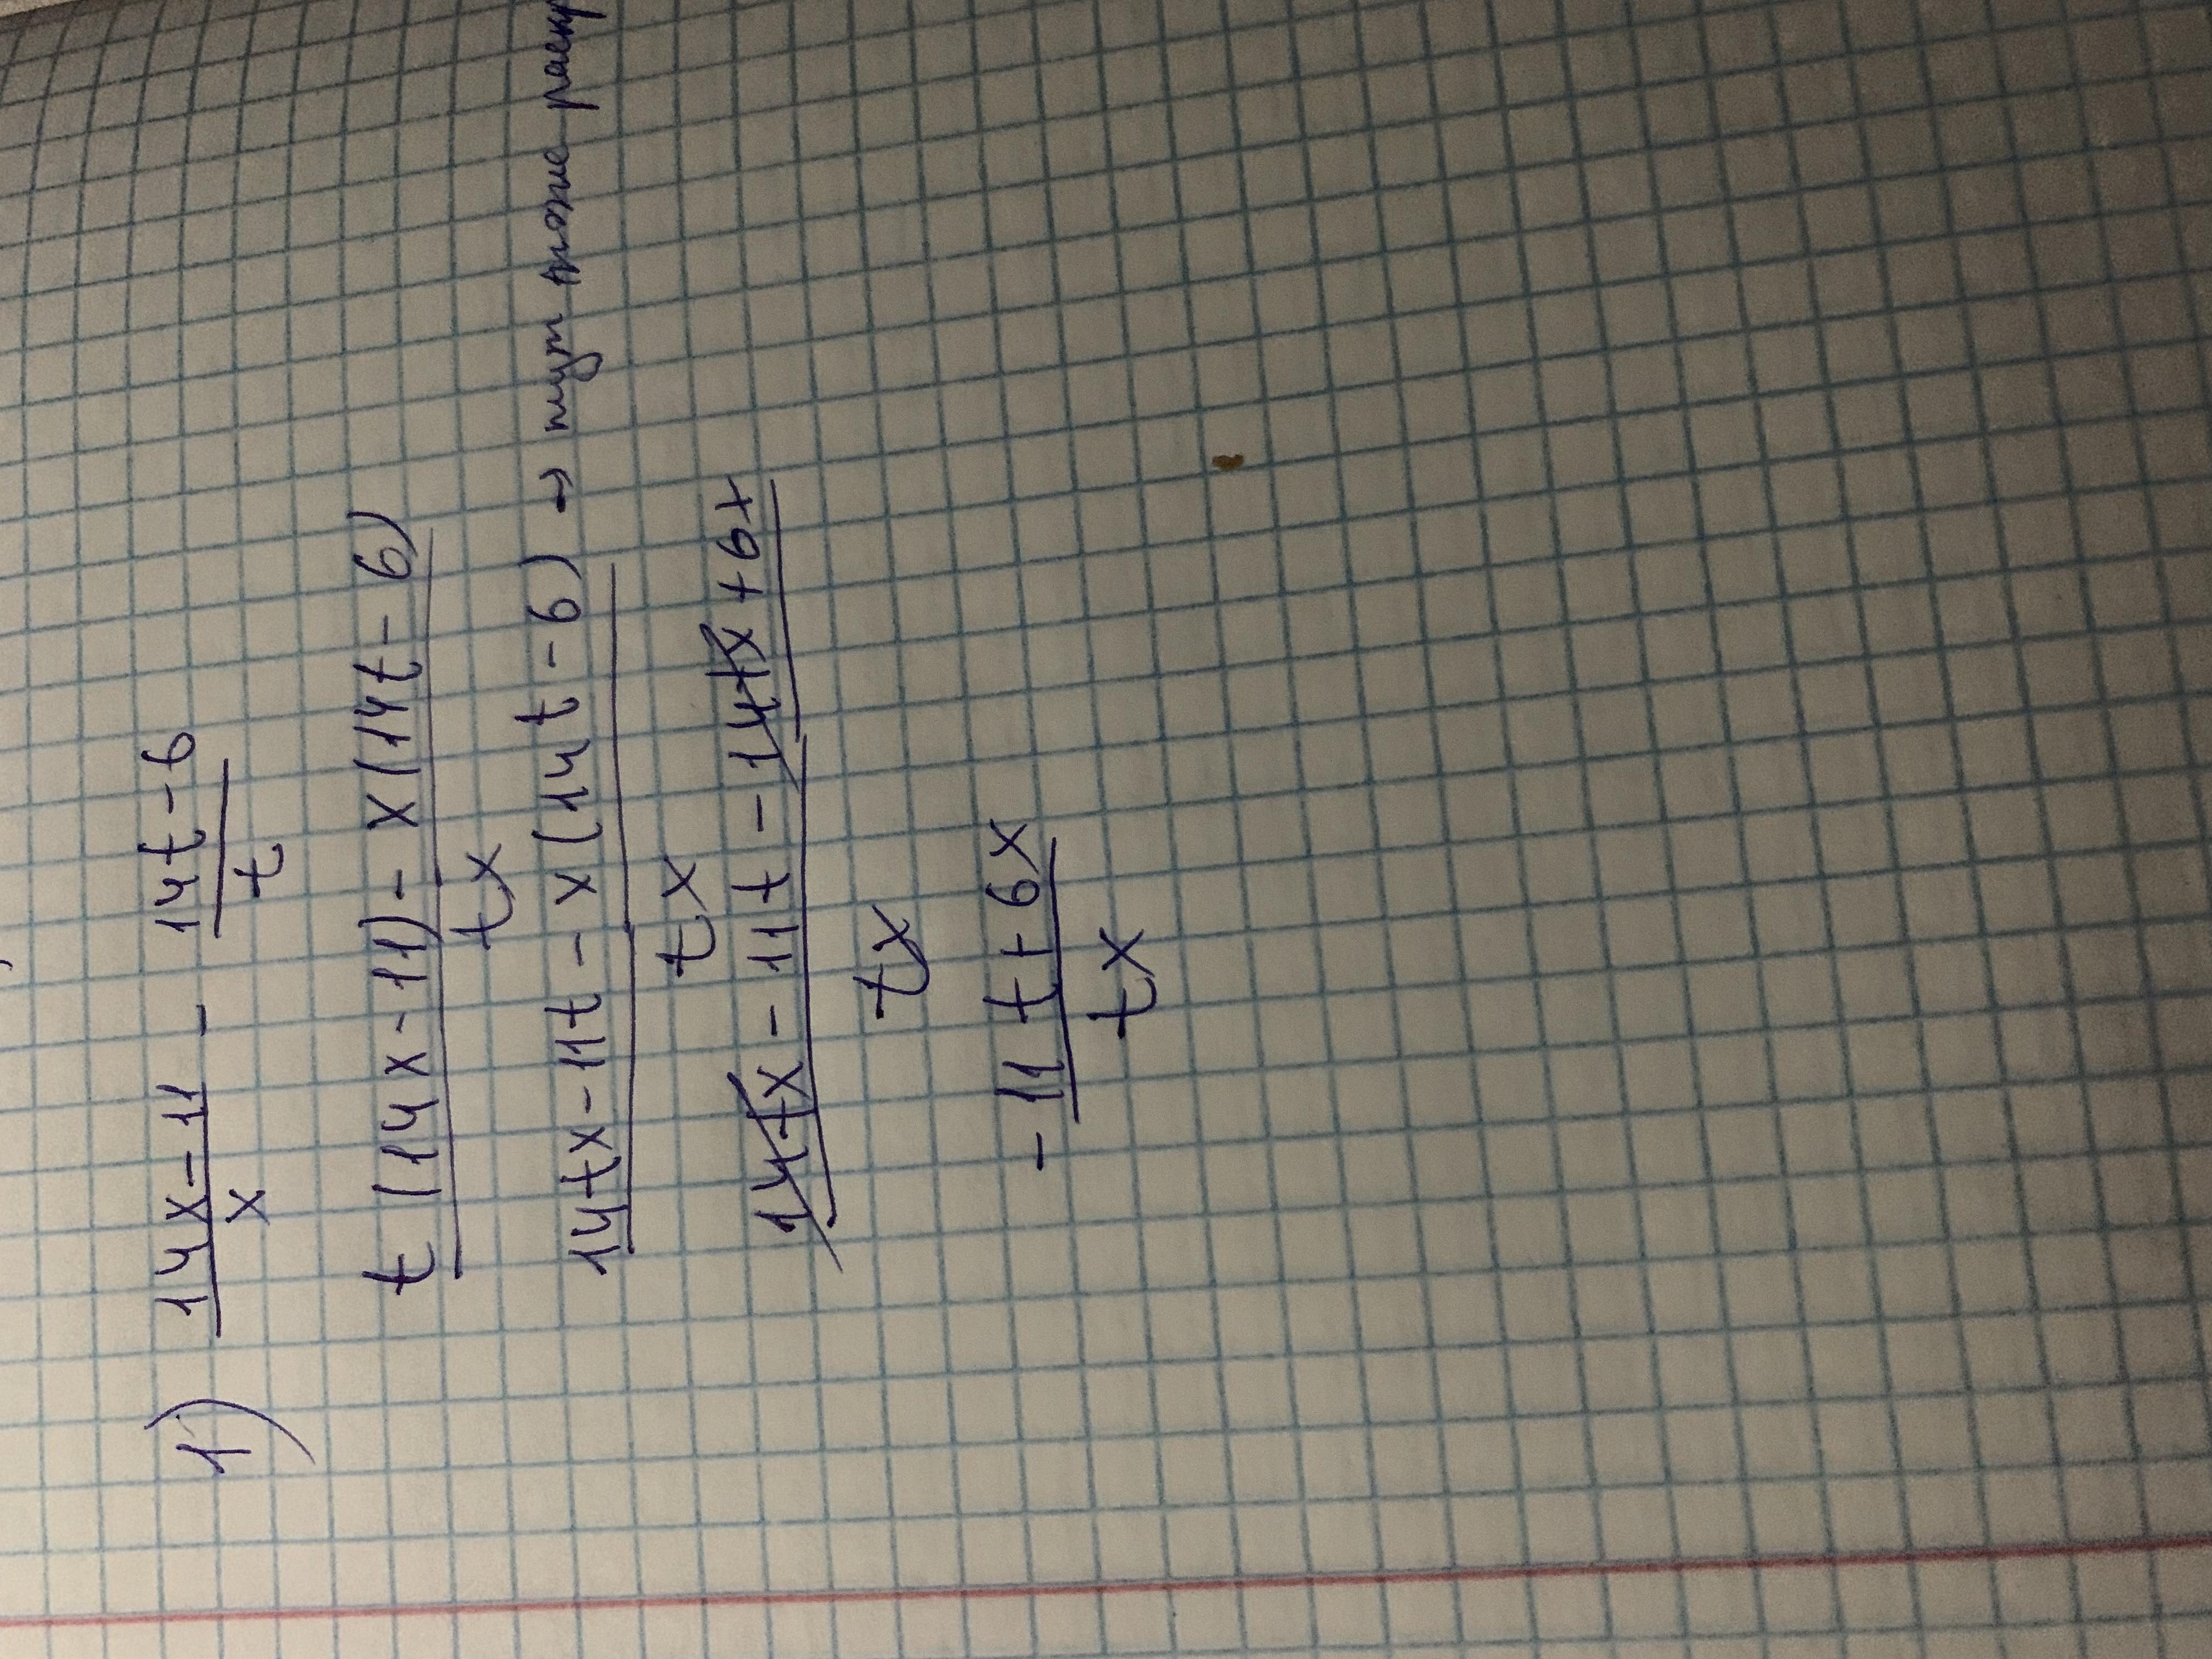 1) (14x-11)/x - (14t-6)/t
(t(14x-11)-x(14t-6))/tx
(14tx-11t-x(14t-6))/tx → тут тоже раскр
(14tx-11t-14tx+6x)/tx
(-11t+6x)/tx